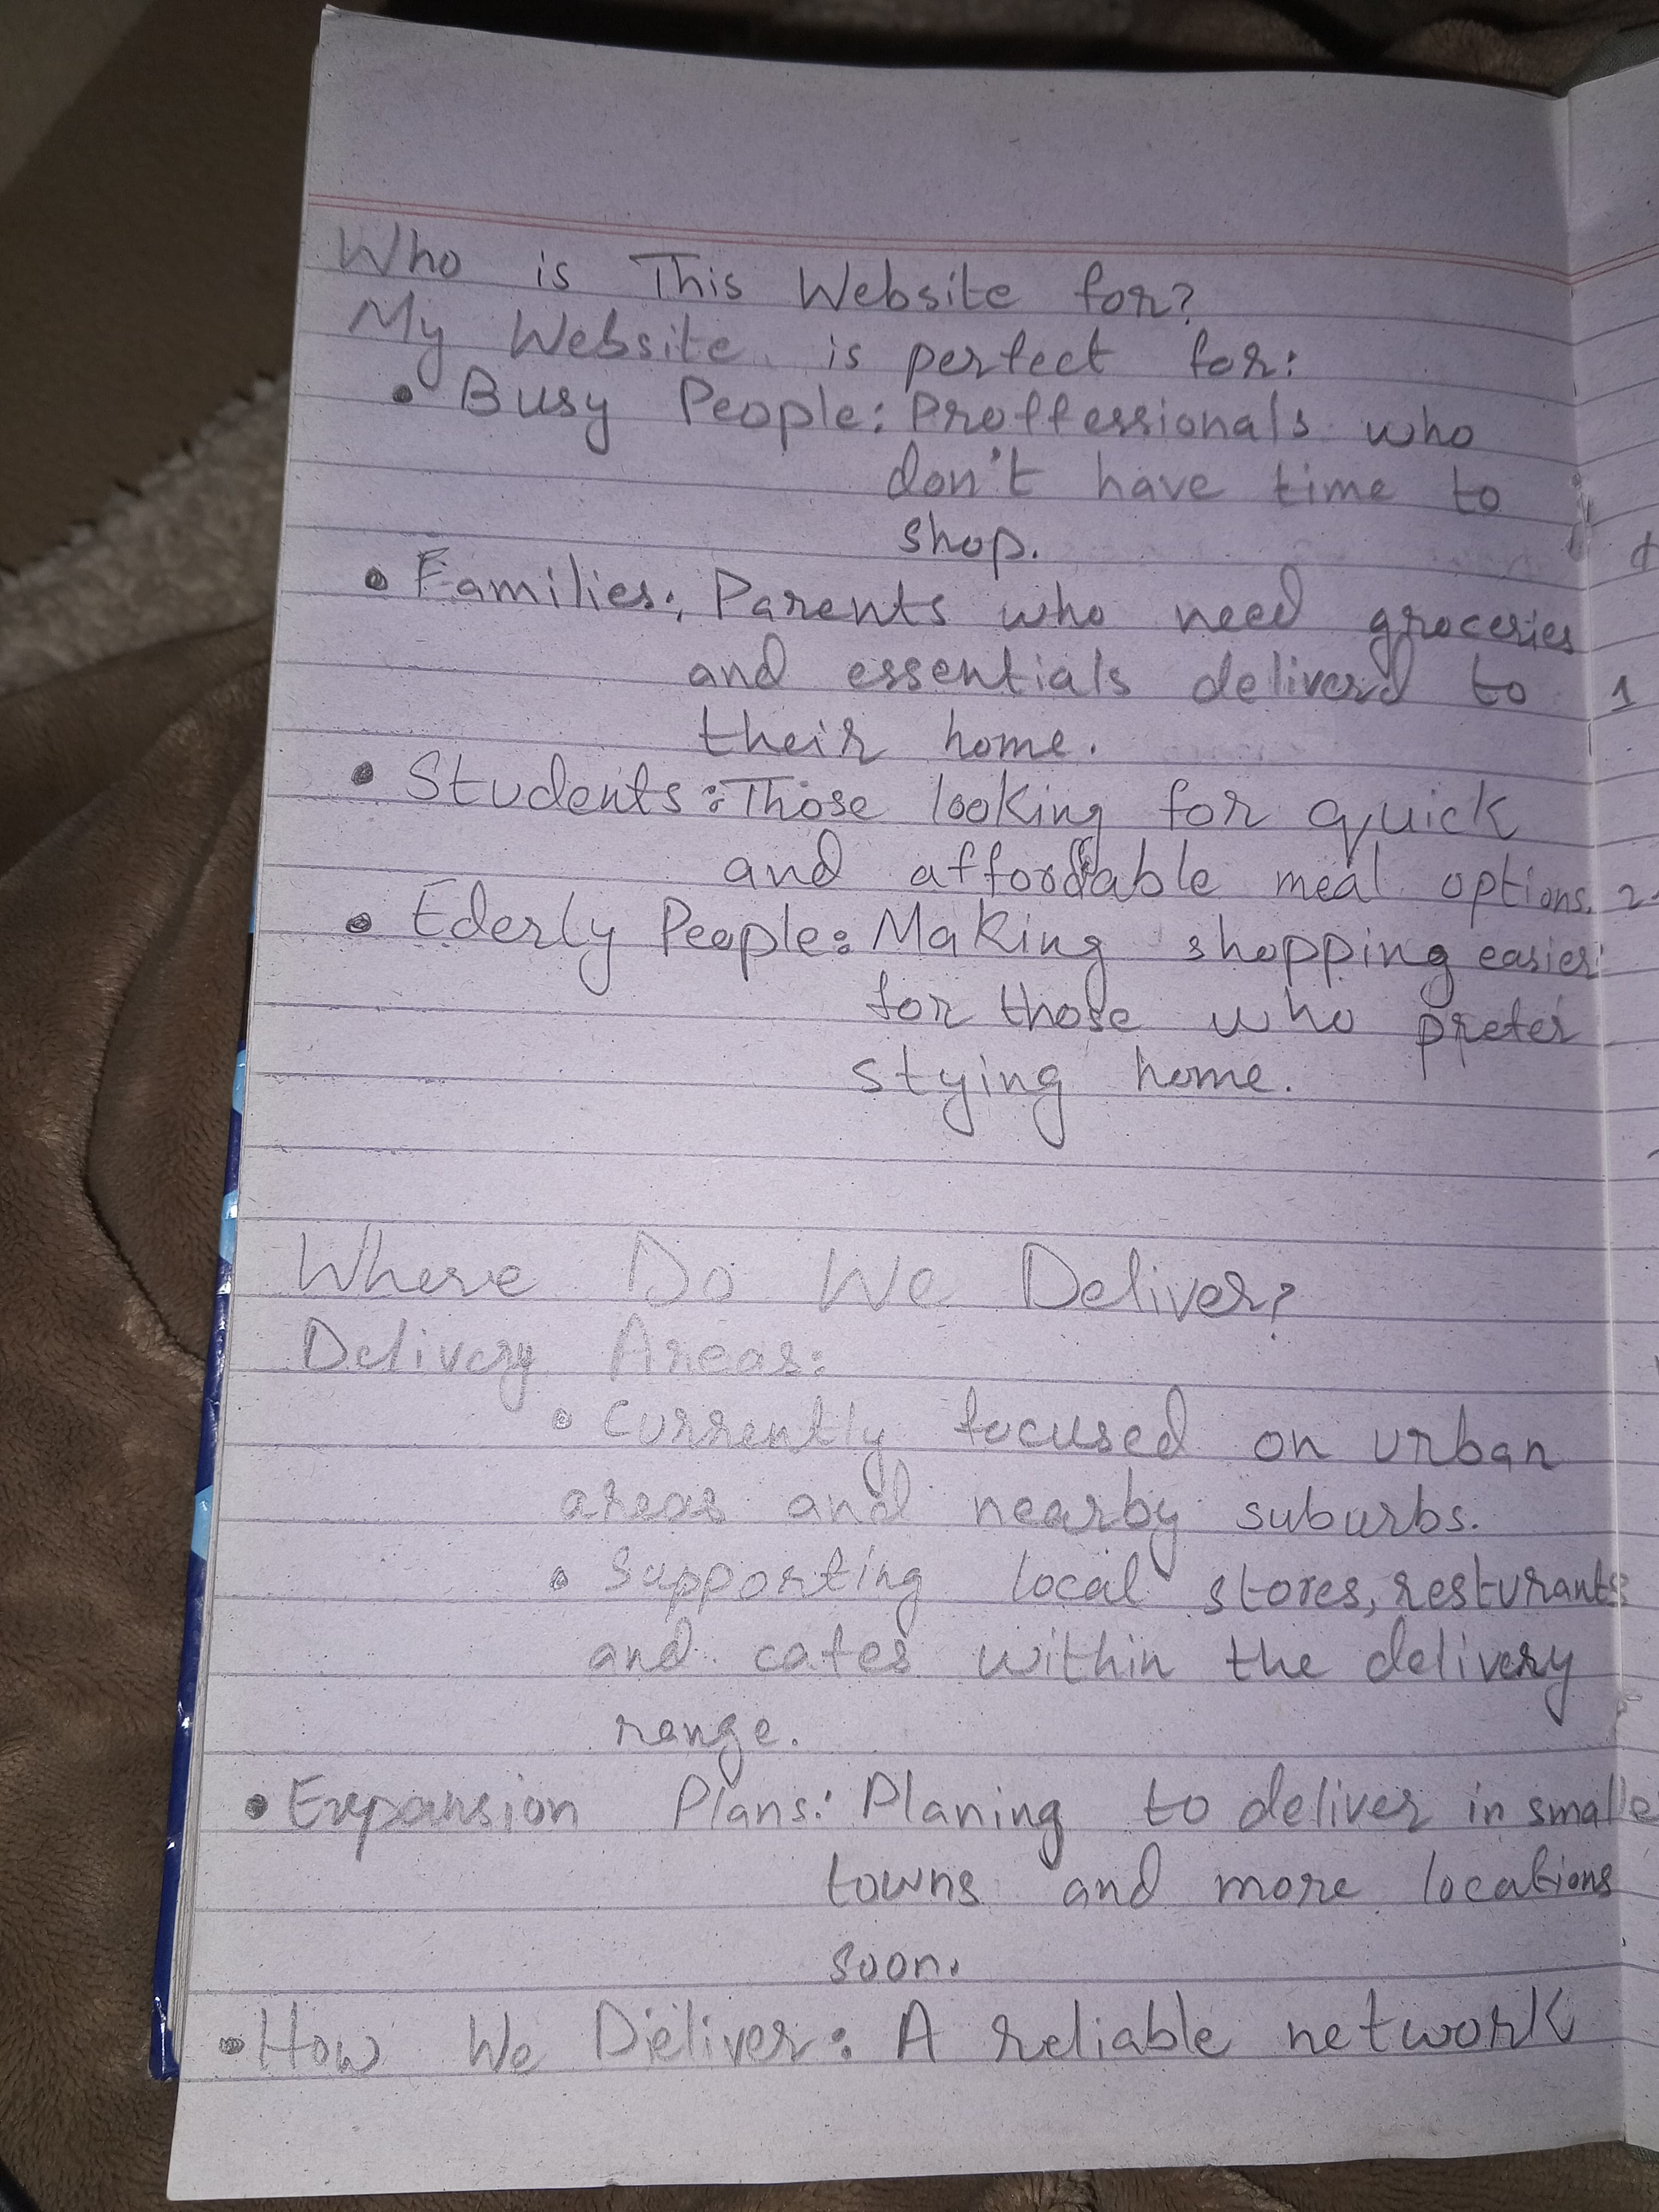 Who is This Website for?
My Website is perfect for:
• Busy People: Proffessionals who
don't have time to
shop.
• Families: Parents who need groceries
and essentials deliverd to
their home.
• Students: Those looking for quick
and affordable meal options.
• Ederly People: Making shopping easier
for those who prefer
stying home.
Where Do We Deliver?
Delivery Areas:
• Currently focused on urban
areas and nearby suburbs.
• Supporting local stores, resturants
and cafes within the delivery
range.
• Expansion Plans: Planing to deliver in smalle
towns and more locations
soon.
• How We Deliver: A reliable network
1
2.